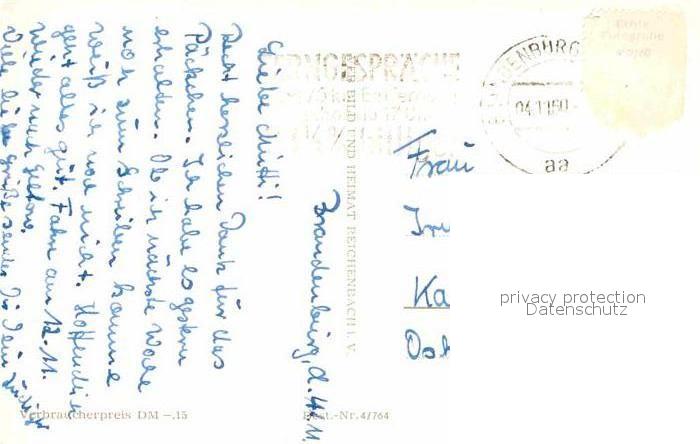 Brandenburg, d. 4.11.
Liebe Mutti!
Recht herzlichen Dank für das
Päckchen. Ich habe es gestern
erhalten. Ob ich nächste Woche
noch zum Schreiben komme
weiß ich noch nicht. Hoffentlich
geht alles gut. Fahre am 12.11.
wieder nach
Viele liebe Grüße sendet Dir Dein
FERNGESPRÄCHE
04.11.60
aa
Echte
Fotografie
VEB BILD UND HEIMAT REICHENBACH i. V.
Frau
Ka
privacy protection
Datenschutz
Verbraucherpreis DM –.15
Best.-Nr. 4/764